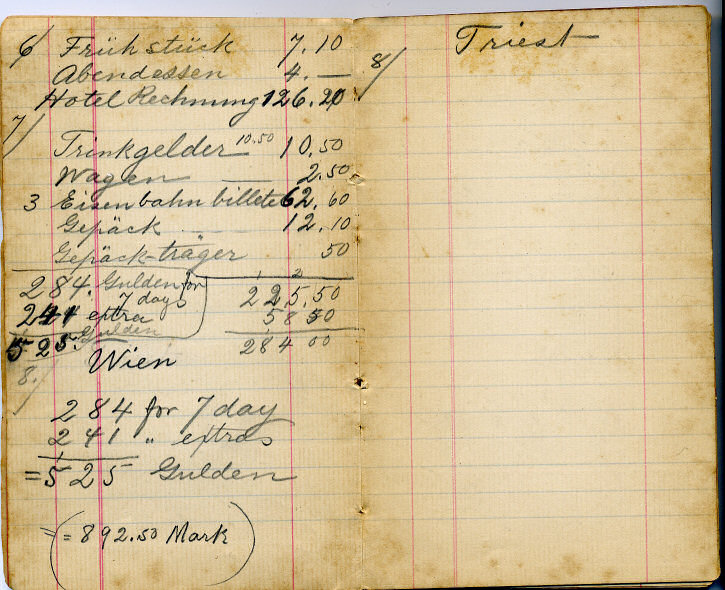 6/ Frühstück 7.10
Abendessen 4.—
Hotel Rechnung 126.20
7/
Trinkgelder 10.50 10.50
Wagen — 2.50
3 Eisenbahn billete 62.60
Gepäck 12.10
Gepäck-träger 50
284. Gulden for 225.50
7 days
241 extra 58 50
525. Gulden 284 00
Wien
8./
284 for 7 day
241 " extras
= 525 Gulden
= 892.50 Mark
8/ Triest